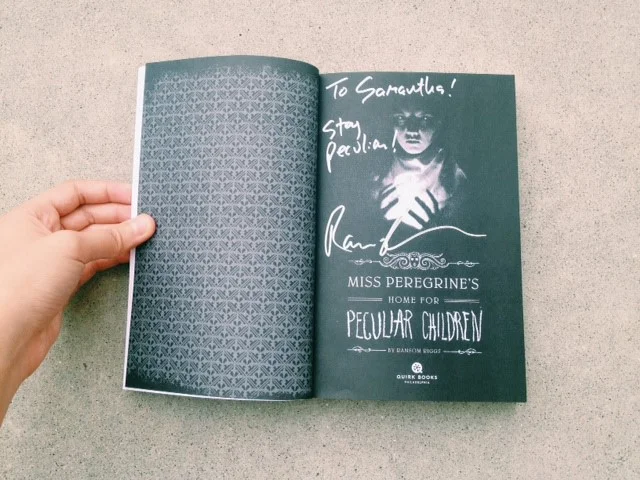 To Samantha!
Stay
peculiar!
Ran
MISS PEREGRINE'S
HOME FOR
PECULIAR CHILDREN
BY RANSOM RIGGS
QUIRK BOOKS
PHILADELPHIA